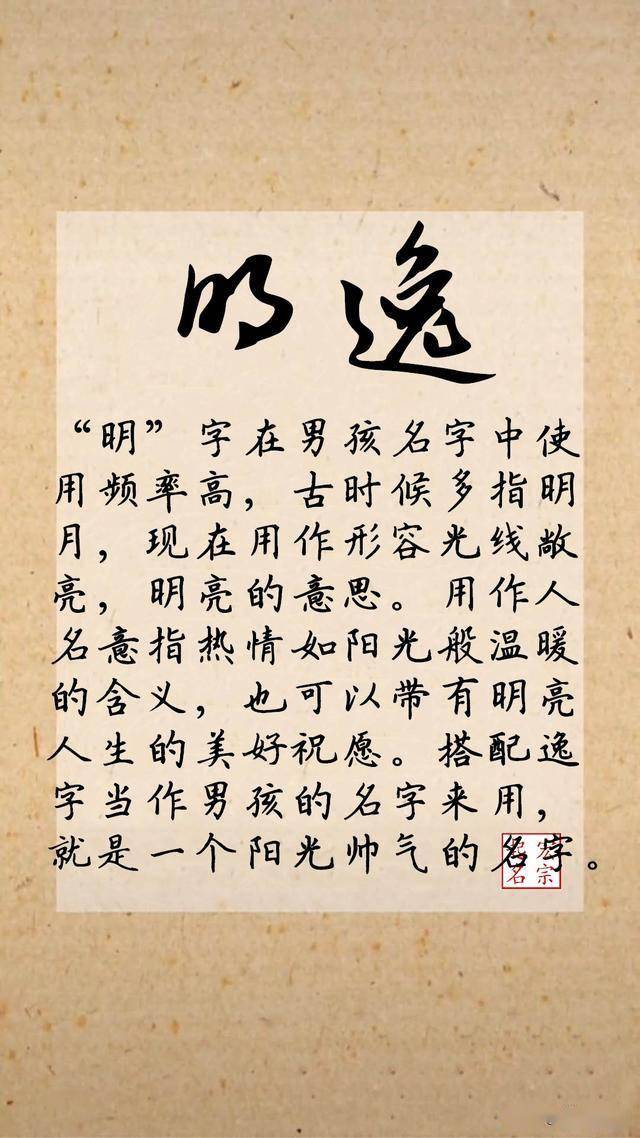 明逸
“明”字在男孩名字中使
用频率高，古时候多指明
月，现在用作形容光线敞
亮，明亮的意思。用作人
名意指热情如阳光般温暖
的含义，也可以带有明亮
人生的美好祝愿。搭配逸
字当作男孩的名字来用，
就是一个阳光帅气的名字。
宏宗
起名